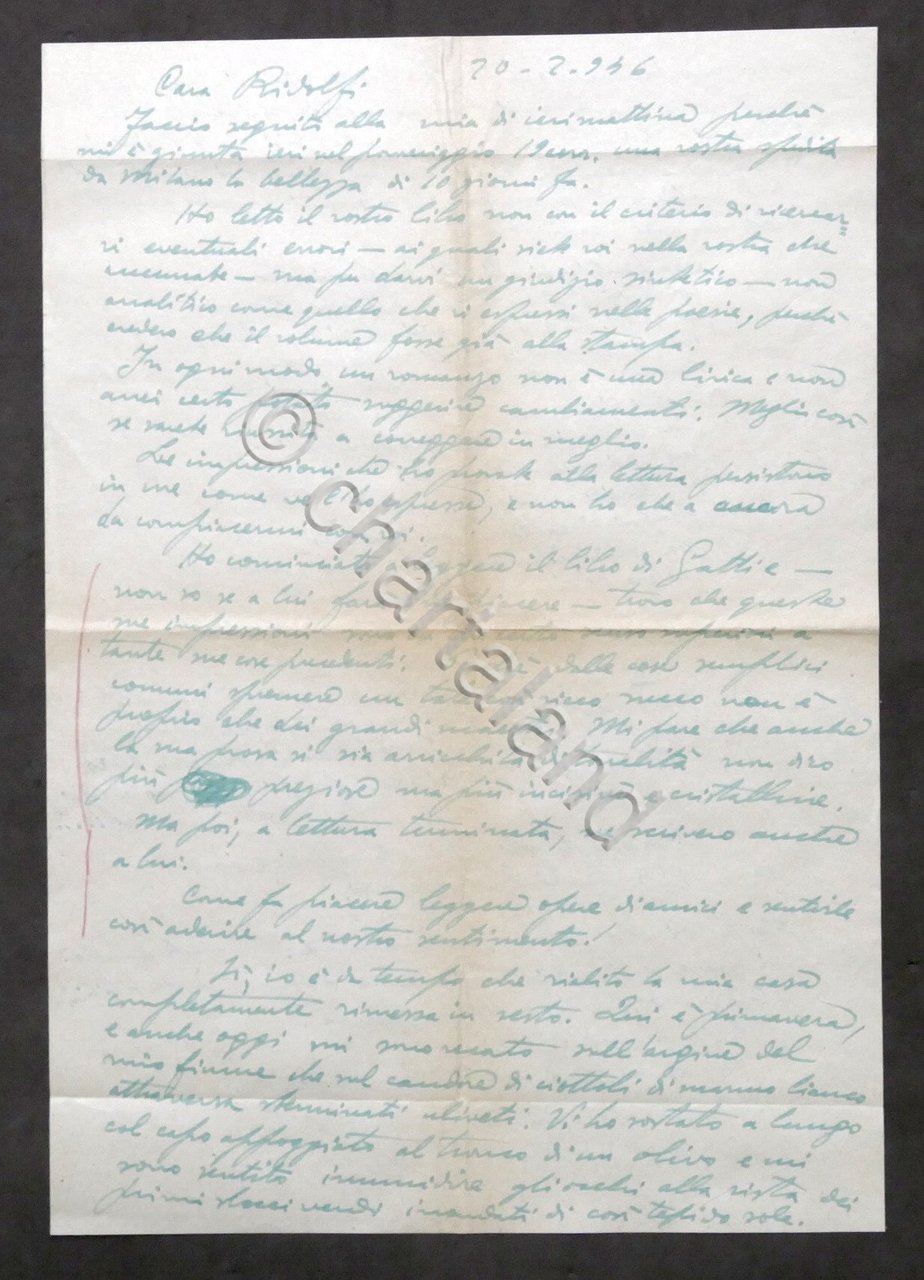 20-2-946
Caro Ridolfi
Faccio seguito alla mia di ieri mattina perché
mi è giunta ieri nel pomeriggio 19 corr. una vostra spedita
da Milano la bellezza di 10 giorni fa.
Ho letto il vostro libro non con il criterio di ricercar
vi eventuali errori — ai quali siete voi nella vostra che
accennate — ma per darvi un giudizio sintetico — non
analitico come quello che vi espressi nelle poesie, perché
credevo che il volume fosse già alla stampa.
In ogni modo, un romanzo non è una lirica e non
avrei certo potuto suggerire cambiamenti. Meglio così
se sarete riuscito a correggere in meglio.
Le impressioni che ho avute alla lettura persistono
in me come ve le ho espresse, e non ho che a ancora
da compiacermi con voi.
Ho cominciato a leggere il libro di Gatti e —
non so se a lui farà piacere — trovo che queste
sue impressioni sono in un certo senso superiori a
tante sue cose precedenti. dalle cose semplici
comuni spremere un tal ricco succo non è
proprio che dei grandi Mi pare che anche
la sua prosa si sia arricchita di tonalità non dico
più preziose ma più incisive e cristalline.
Ma poi, a lettura terminata, ne scriverò anche
a lui.
Come fa piacere leggere opere di amici e sentirle
così aderire al nostro sentimento!
Sì, io è da tempo che riabito la mia casa
completamente rimessa in sesto. Qui è primavera,
e anche oggi mi sono recato sull'argine del
mio fiume che sul candore di ciottoli di marmo bianco
attraversa sterminati uliveti. Vi ho sostato a lungo
col capo appoggiato al tronco di un olivo e mi
sono sentito inumidire gli occhi alla vista dei
primi stecci verdi inondati di così tepido sole.
© chartaland